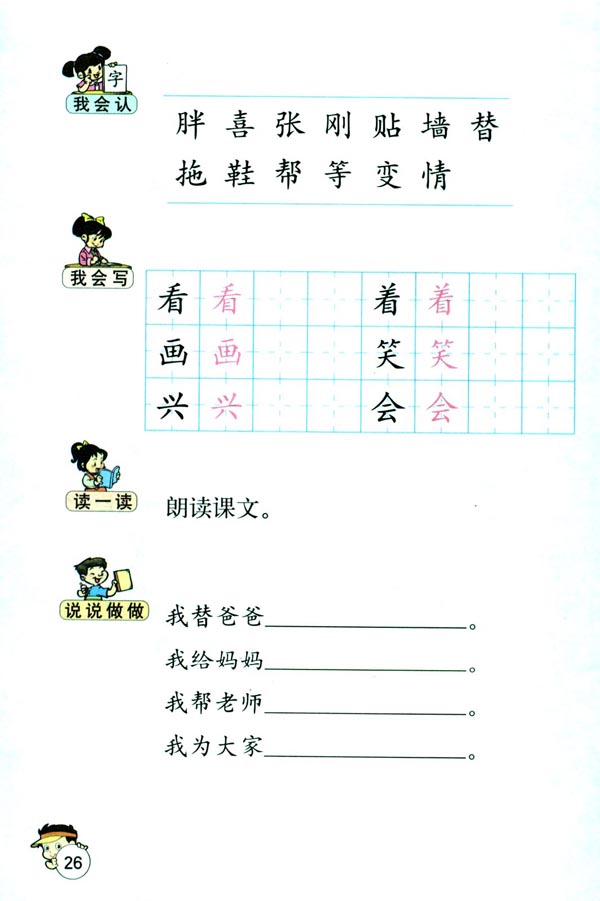 字
我会认
胖 喜 张 刚 贴 墙 替
拖 鞋 帮 等 变 情
我会写
看 看 着 着
画 画 笑 笑
兴 兴 会 会
读一读
朗读课文。
说说做做
我替爸爸________________。
我给妈妈________________。
我帮老师________________。
我为大家________________。
26